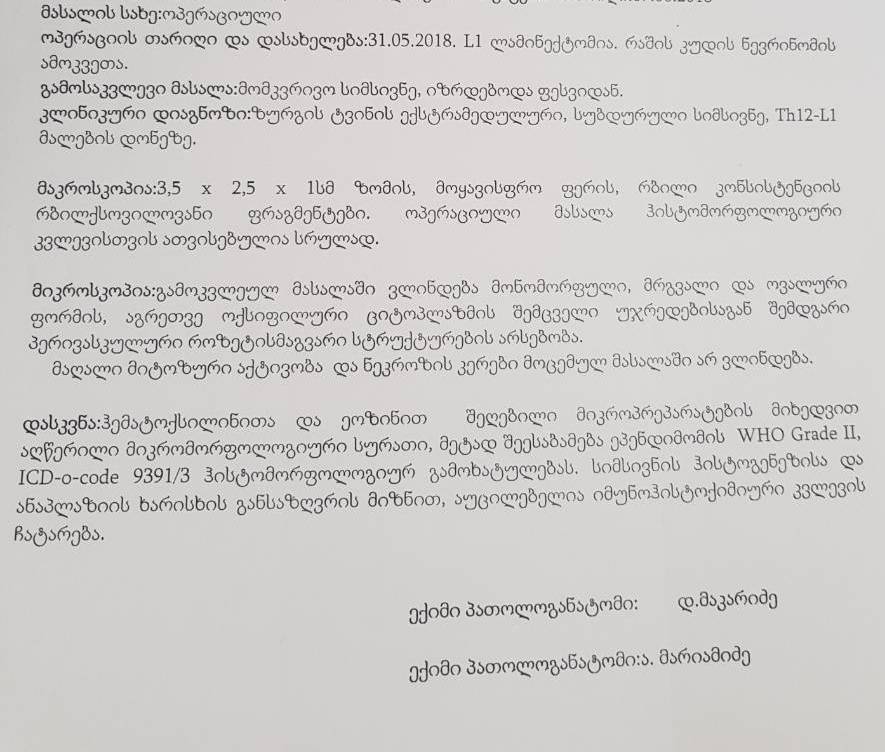 მასალის სახე:ოპერაციული
ოპერაციის თარიღი და დასახელება:31.05.2018. L1 ლამინექტომია. რაშის კუდის ნევრინომის
ამოკვეთა.
გამოსაკვლევი მასალა:მომკვრივო სიმსივნე, იზრდებოდა ფესვიდან.
კლინიკური დიაგნოზი:ზურგის ტვინის ექსტრამედულური, სუბდურული სიმსივნე, Th12-L1
მალების დონეზე.
მაკროსკოპია:3,5 x 2,5 x 1სმ ზომის, მოყავისფრო ფერის, რბილი კონსისტენციის
რბილქსოვილოვანი ფრაგმენტები. ოპერაციული მასალა ჰისტომორფოლოგიური
კვლევისთვის ათვისებულია სრულად.
მიკროსკოპია:გამოკვლეულ მასალაში ვლინდება მონომორფული, მრგვალი და ოვალური
ფორმის, აგრეთვე ოქსიფილური ციტოპლაზმის შემცველი უჯრედებისაგან შემდგარი
პერივასკულური როზეტისმაგვარი სტრუქტურების არსებობა.
მაღალი მიტოზური აქტივობა და ნეკროზის კერები მოცემულ მასალაში არ ვლინდება.
დასკვნა:ჰემატოქსილინითა და ეოზინით შეღებილი მიკროპრეპარატების მიხედვით
აღწერილი მიკრომორფოლოგიური სურათი, მეტად შეესაბამება ეპენდიმომის WHO Grade II,
ICD-o-code 9391/3 ჰისტომორფოლოგიურ გამოხატულებას. სიმსივნის ჰისტოგენეზისა და
ანაპლაზიის ხარისხის განსაზღვრის მიზნით, აუცილებელია იმუნოჰისტოქიმიური კვლევის
ჩატარება.
ექიმი პათოლოგანატომი: დ.მაკარიძე
ექიმი პათოლოგანატომი:ა. მარიამიძე